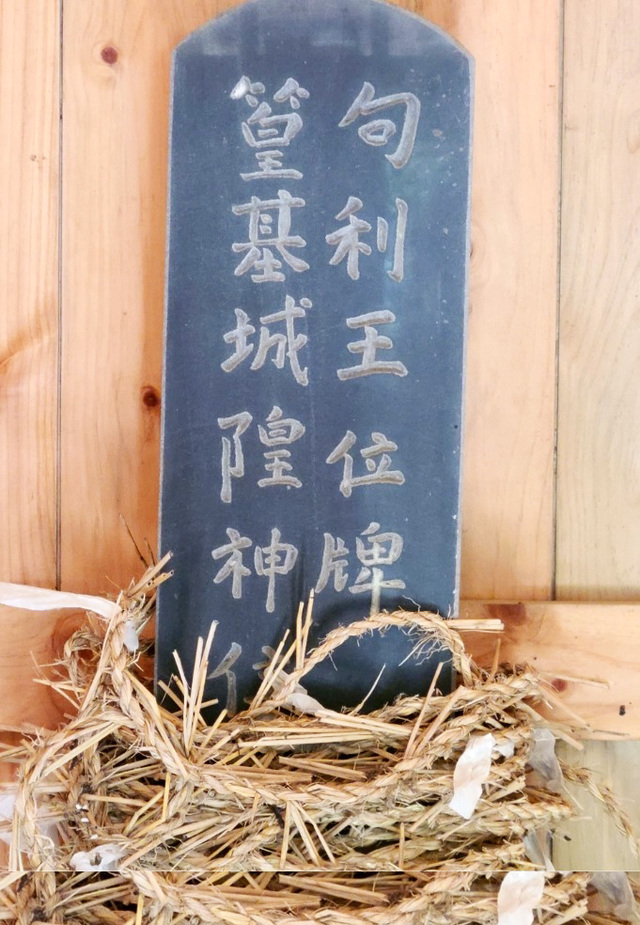 句利王位牌
篁基城隍神